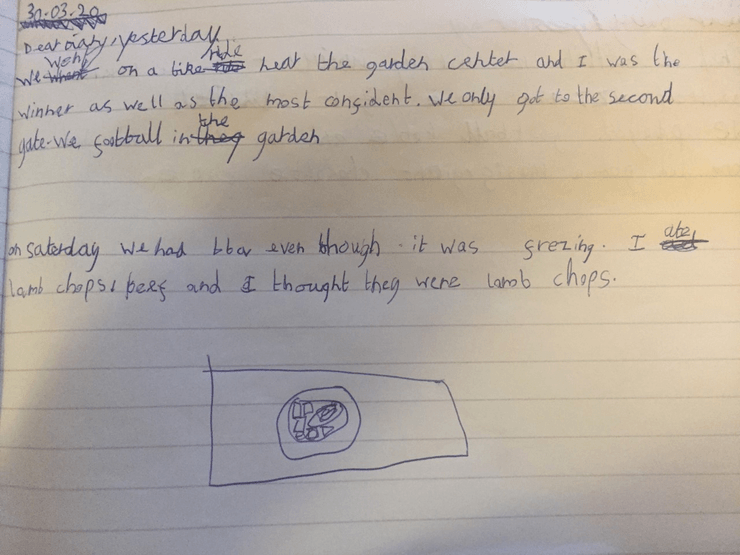 30.03.20
Dear diary, yesterday
We went on a bike ride near the garden center and I was the
winner as well as the most confident. We only got to the second
gate. We football in the garden
on saterday we had bbq even though it was frezing. I ate
lamb chops, beef and I thought they were lamb chops.